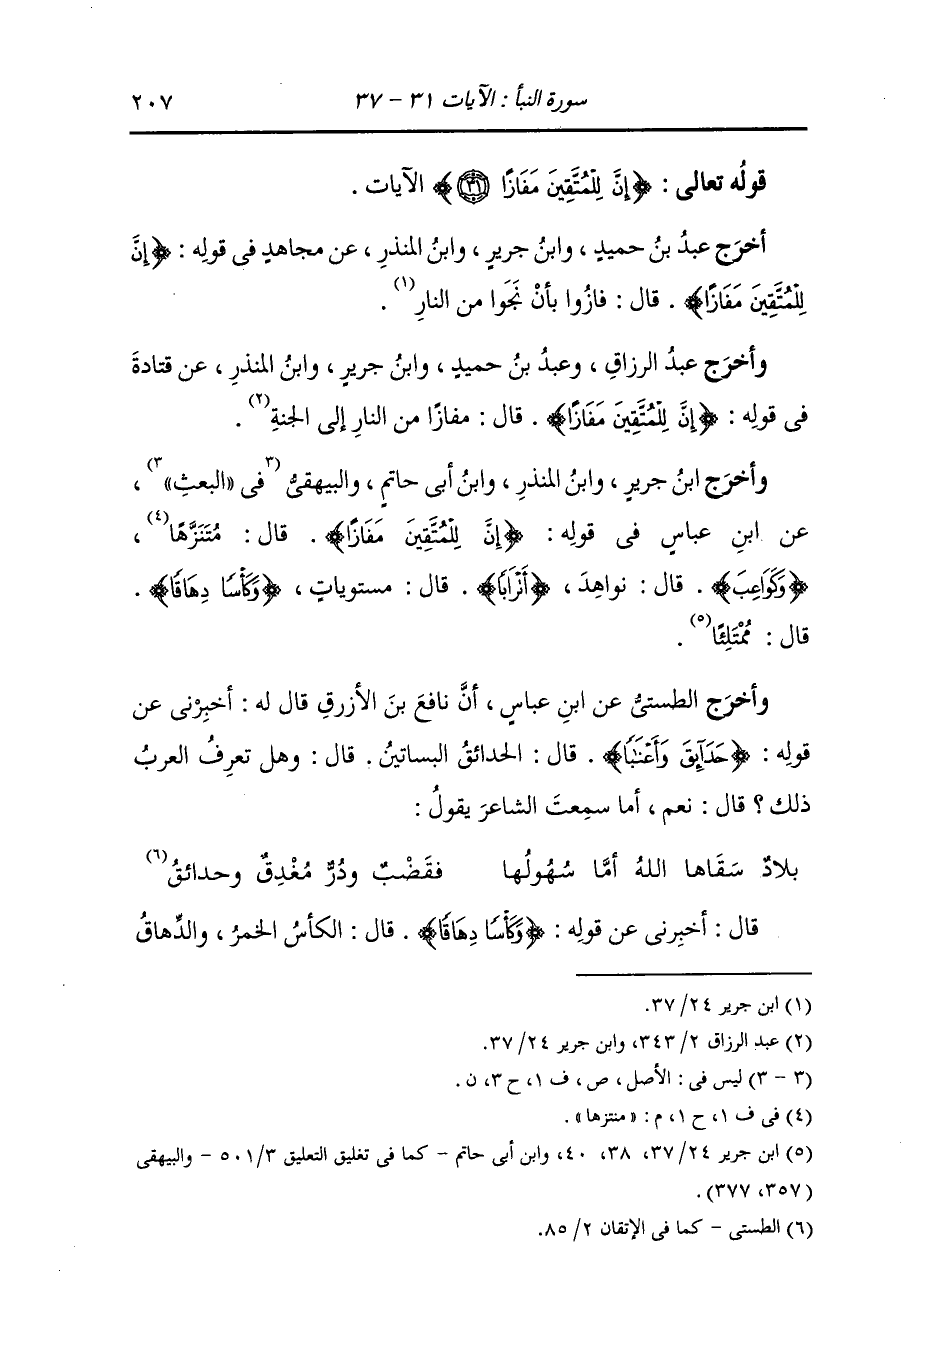 سورة النبأ : الآيات ٣١ - ٣٧ ٢٠٧
قولُه تعالى : ﴿إِنَّ لِلْمُتَّقِينَ مَفَازًا ﴿٣١﴾﴾ الآيات .
أخرَج عبدُ بنُ حميدٍ ، وابنُ جريرٍ ، وابنُ المنذرِ ، عن مجاهدٍ فى قولِه : ﴿إِنَّ
لِلْمُتَّقِينَ مَفَازًا﴾ . قال : فازُوا بأنْ نَجَوا من النارِ(١) .
وأخرَج عبدُ الرزاقِ ، وعبدُ بنُ حميدٍ ، وابنُ جريرٍ ، وابنُ المنذرِ ، عن قتادةَ
فى قولِه : ﴿إِنَّ لِلْمُتَّقِينَ مَفَازًا﴾ . قال : مفازًا من النارِ إلى الجنةِ(٢) .
وأخرَج ابنُ جريرٍ ، وابنُ المنذرِ ، وابنُ أبى حاتمٍ ، والبيهقىُّ (٣فى «البعثِ»٣) ،
عن ابنِ عباسٍ فى قولِه : ﴿إِنَّ لِلْمُتَّقِينَ مَفَازًا﴾ . قال : مُتَنَزَّهًا(٤) ،
﴿وَكَوَاعِبَ﴾ . قال : نواهِدَ ، ﴿أَتْرَابًا﴾ . قال : مستوياتٍ ، ﴿وَكَأْسًا دِهَاقًا﴾ .
قال : مُمْتَلِئًا(٥) .
وأخرَج الطستىُّ عن ابنِ عباسٍ ، أنَّ نافعَ بنَ الأزرقِ قال له : أخبِرْنى عن
قولِه : ﴿حَدَآئِقَ وَأَعْنَٰبًا﴾ . قال : الحدائقُ البساتينُ . قال : وهل تعرِفُ العربُ
ذلك ؟ قال : نعم ، أما سمِعتَ الشاعرَ يقولُ :
بلادٌ سَقَاها اللهُ أمَّا سُهُولُها فقَضْبٌ ودُرٌّ مُغْدِقٌ وحدائقُ(٦)
قال : أخبِرنى عن قولِه : ﴿وَكَأْسًا دِهَاقًا﴾ . قال : الكأسُ الخمرُ ، والدِّهاقُ
(١) ابن جرير ٢٤/ ٣٧.
(٢) عبد الرزاق ٢/ ٣٤٣، وابن جرير ٢٤/ ٣٧.
(٣ - ٣) ليس فى : الأصل ، ص ، ف ١، ح ٣، ن .
(٤) فى ف ١، ح ١، م : « منتزها» .
(٥) ابن جرير ٢٤/ ٣٧، ٣٨، ٤٠، وابن أبى حاتم - كما فى تغليق التعليق ٥٠١/٣ - والبيهقى
(٣٥٧، ٣٧٧) .
(٦) الطستى - كما فى الإتقان ٢/ ٨٥.